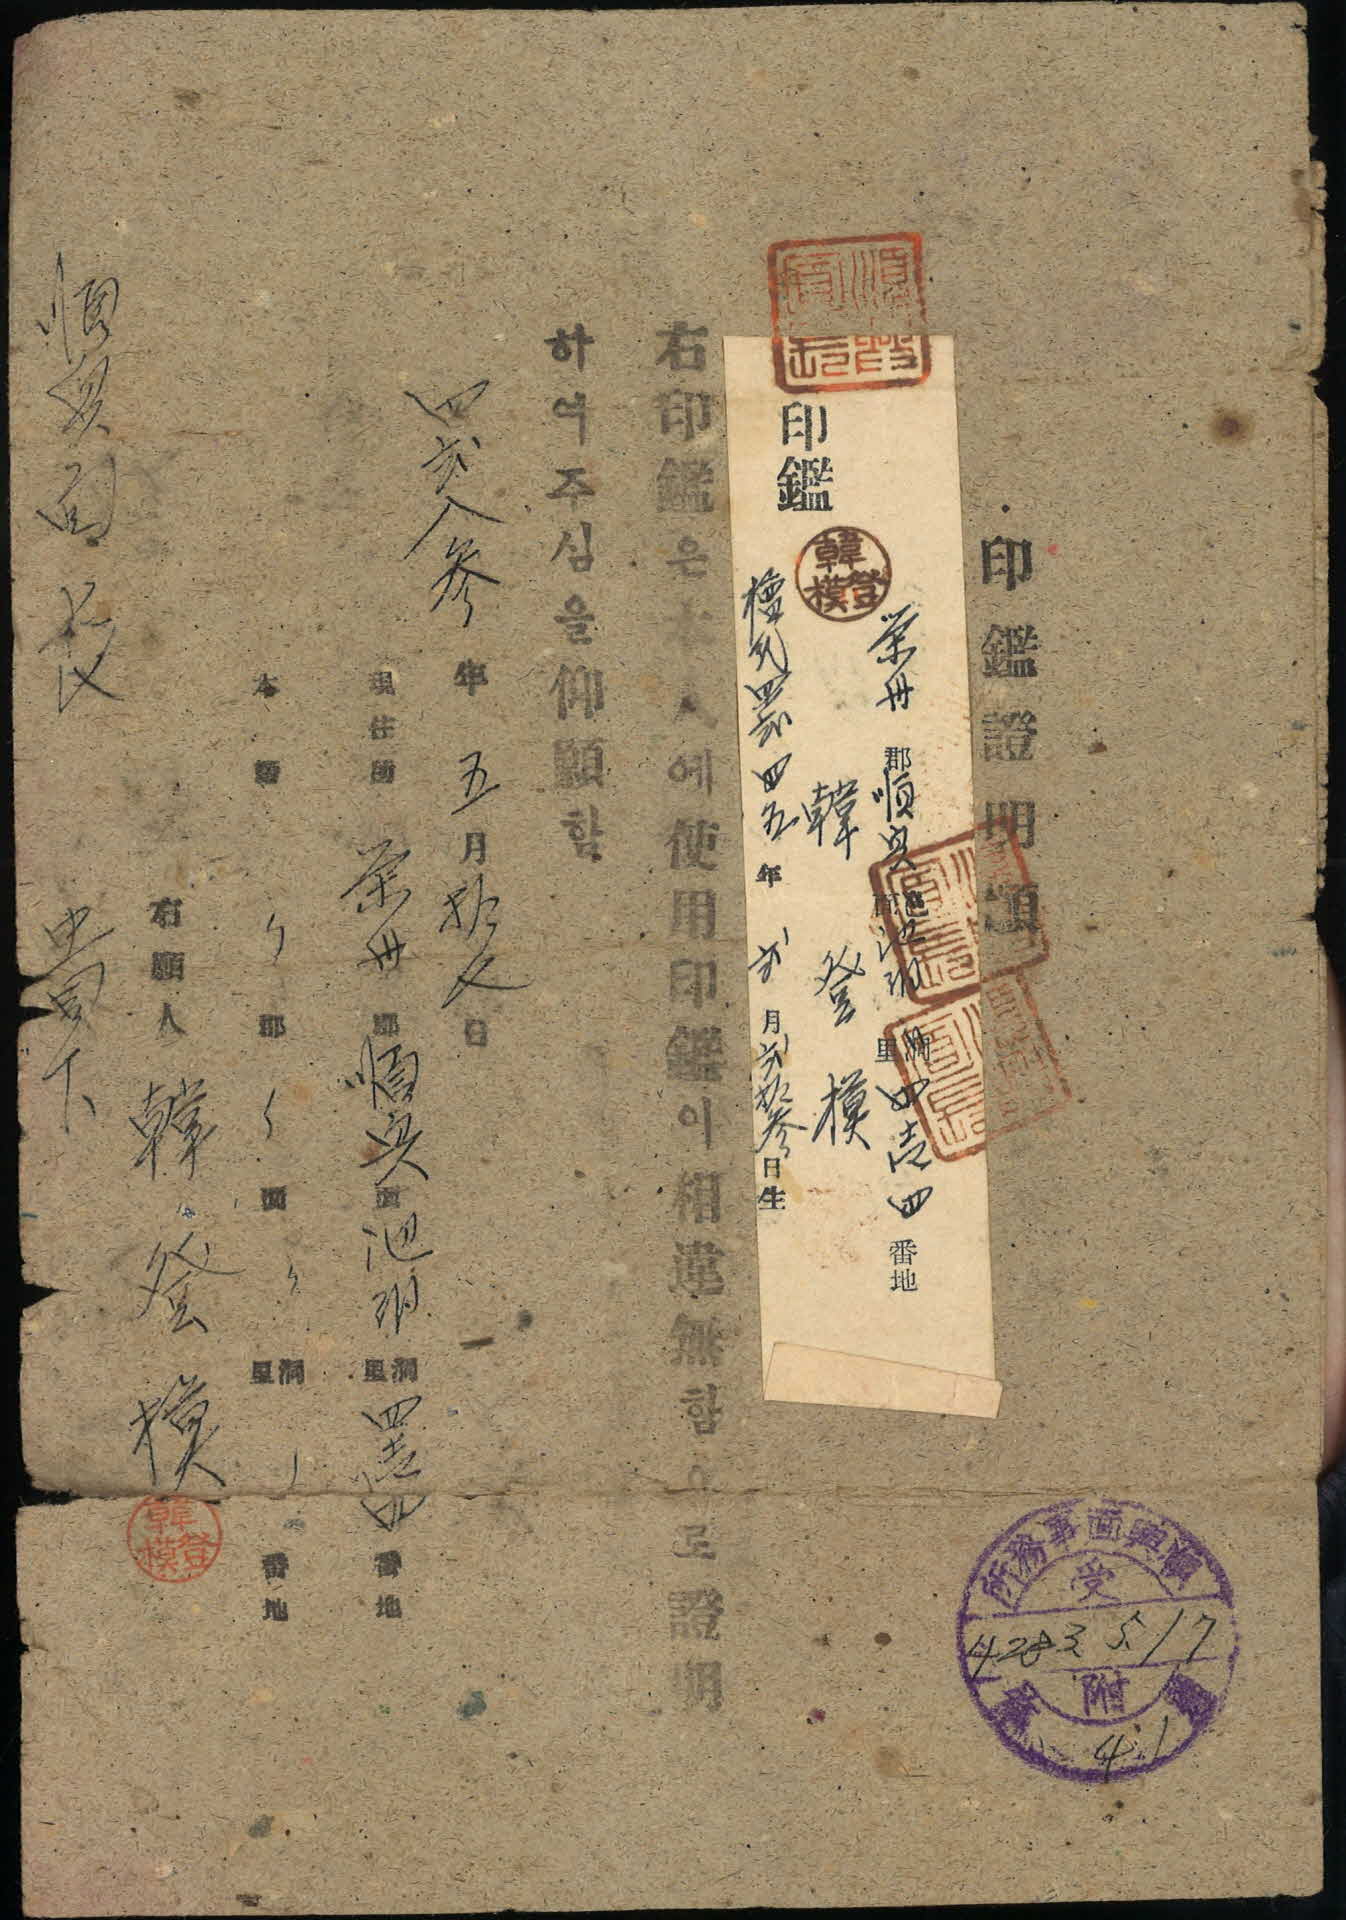 印鑑證明願
印鑑
榮州郡順興面池洞里四百四番地
韓登模
檀紀四貳四五年貳月貳拾參日生
韓登模
右印鑑은本人에使用印鑑이相違無함으로證明
하여주심을仰願함
四貳八參年五月拾七日
現住所 榮州郡順興面池洞里四百四番地
本籍 〃郡〃面〃洞里〃番地
右願人 韓登模
韓登模
順興面長 貴下
順興面事務所
受
4283.5.17
附
第41號